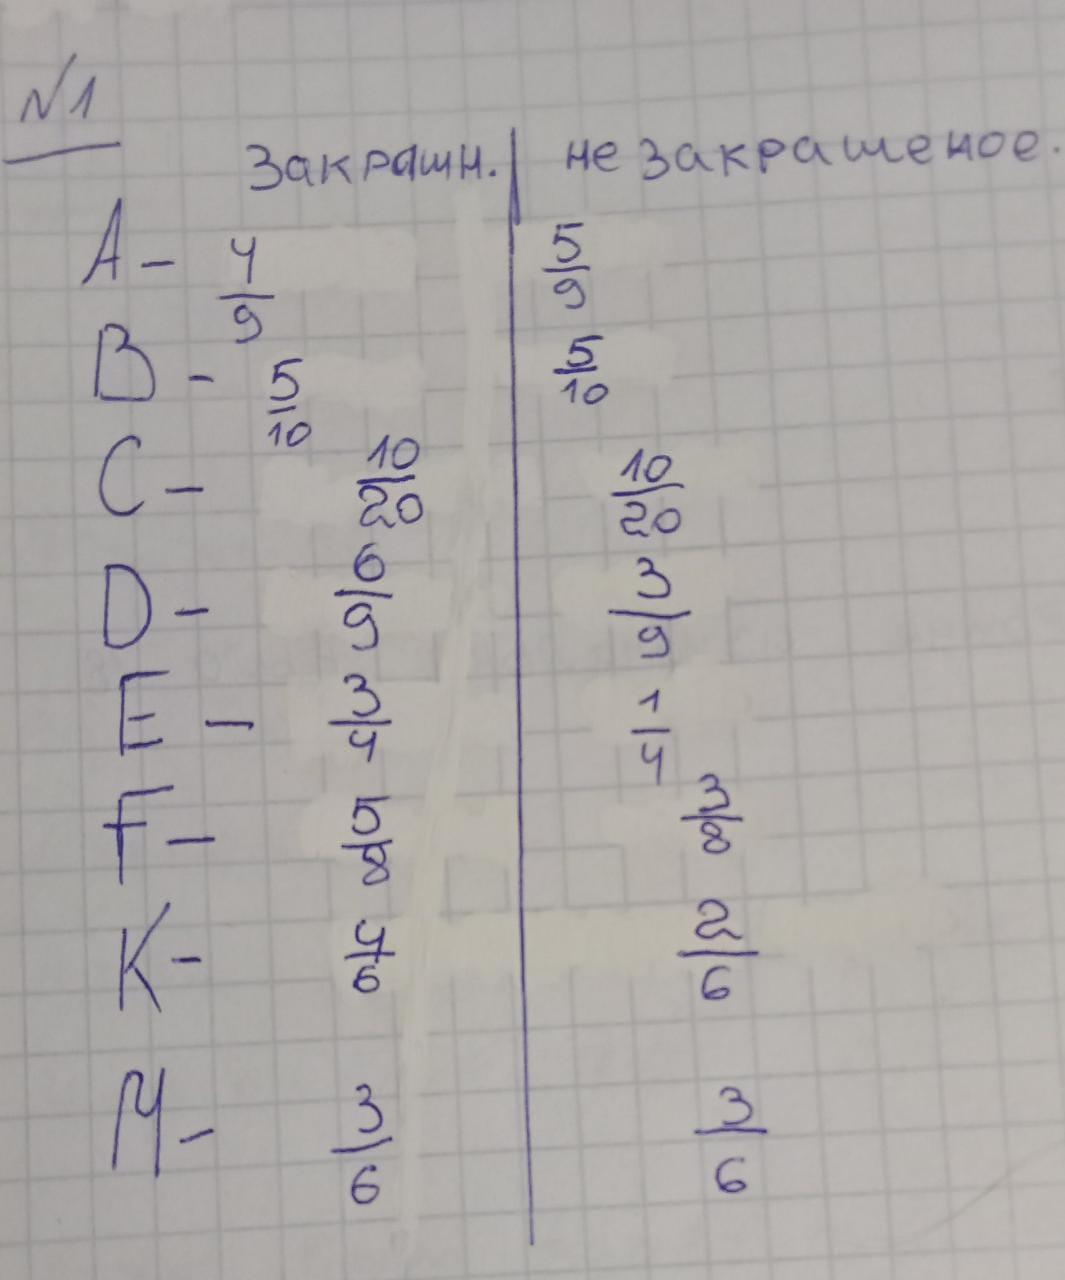 №1
Закрашн. | не закрашеное.
A - 4/9 5/9
B - 5/10 5/10
C - 10/20 10/20
D - 6/9 3/9
E - 3/4 1/4
F - 5/8 3/8
K - 4/6 2/6
M - 3/6 3/6